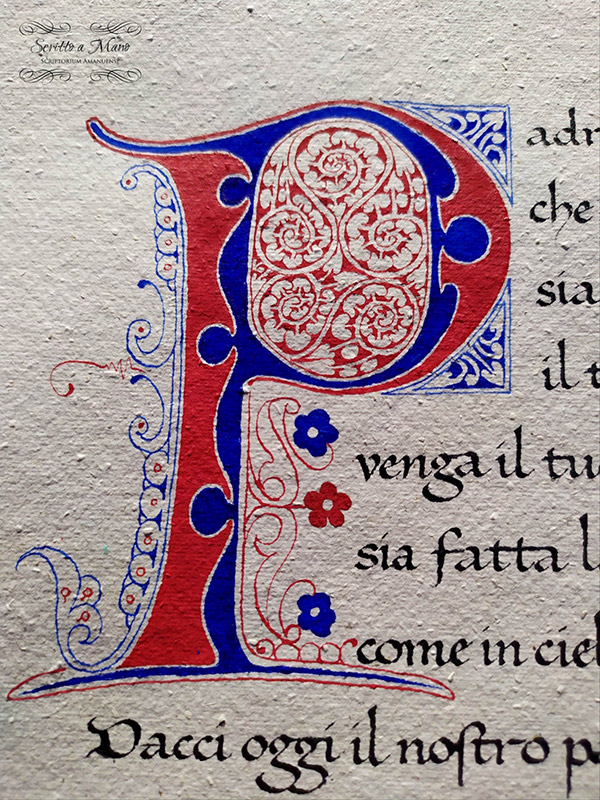 Scritto a Mano
SCRIPTORIUM AMANUENSE
P
adr
che
sia
il t
venga il tu
sia fatta l
come in ciel
Dacci oggi il noſtro p